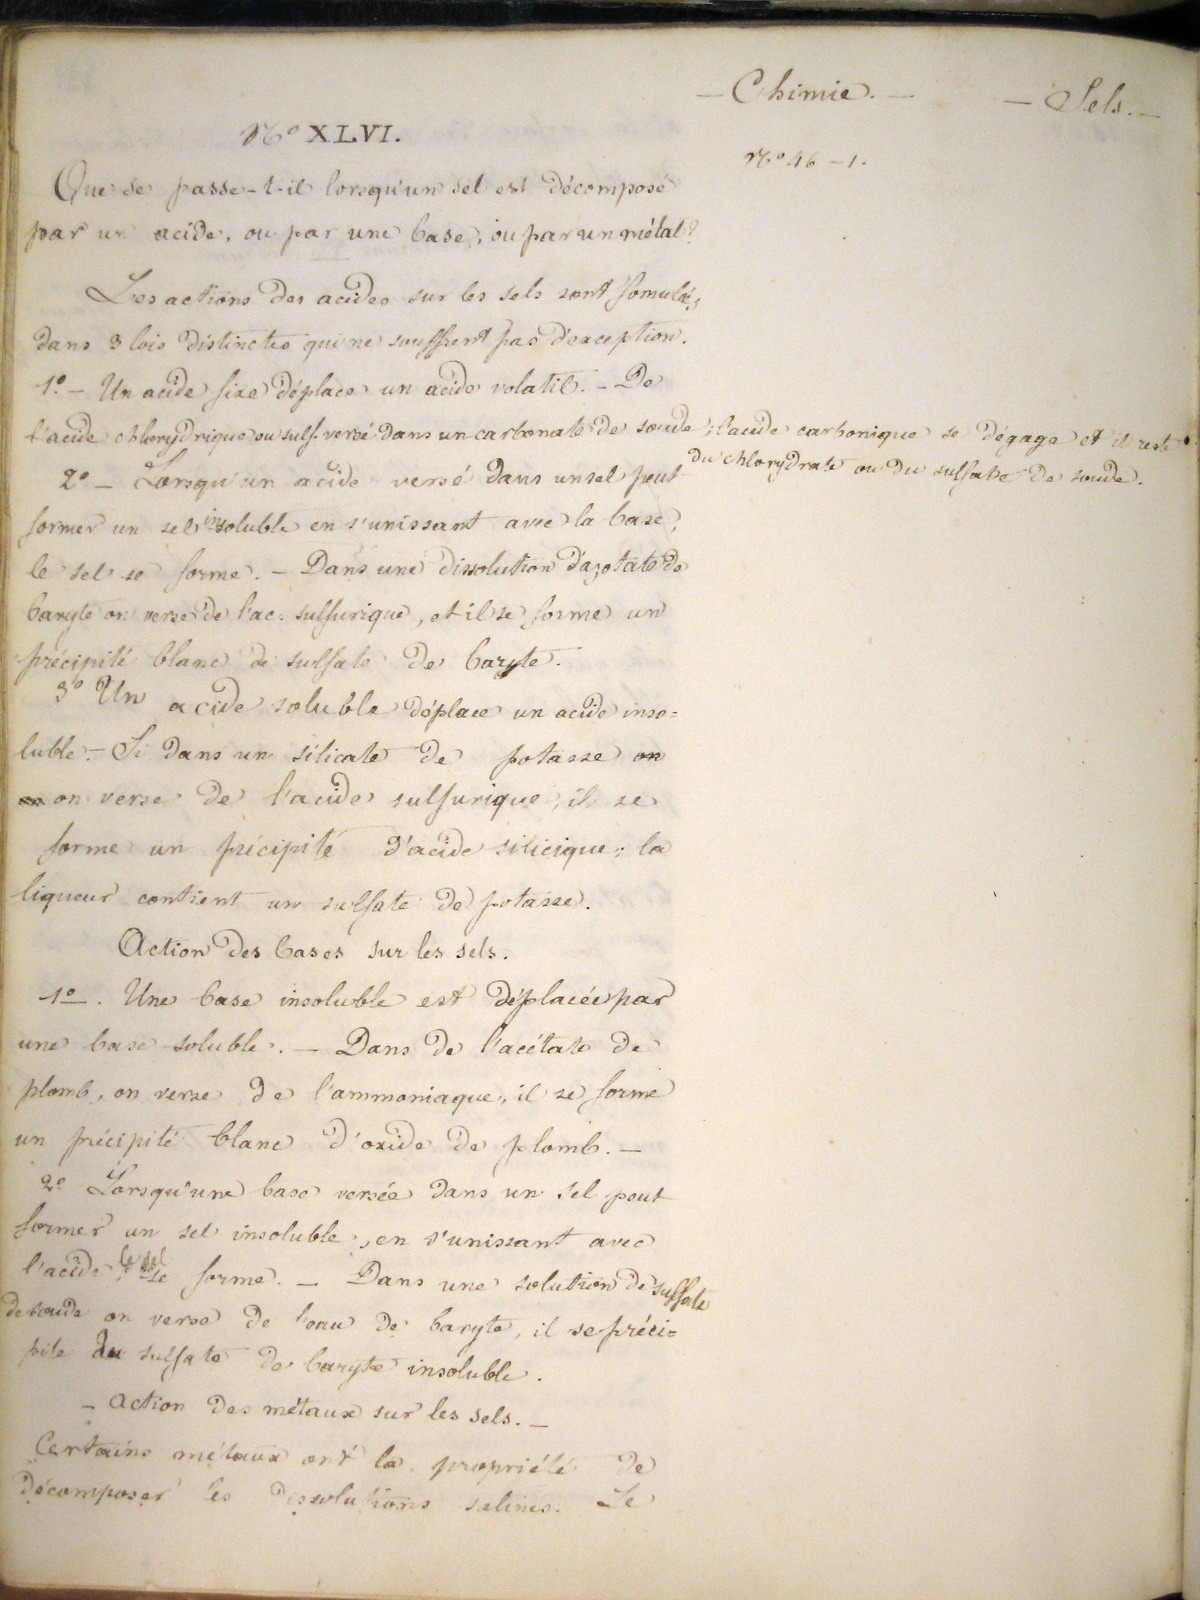 — Chimie. — — Sels. —
N° 46 – 1.
N° XLVI.
Que se passe-t-il lorsqu'un sel est décomposé
par un acide, ou par une base, ou par un métal?
Les actions des acides sur les sels sont fomulées
dans 3 lois distinctes qui ne souffrent pas d'exception.
1° – Un acide fixe déplace un acide volatil. – De
l'acide chlorydrique ou sulf. versé dans un carbonate de soude, l'acide carbonique se dégage et il reste
du chlorydrate ou du sulfate de soude.
2° – Lorsqu'un acide versé dans un sel peut
former un sel insoluble en s'unissant avec la base,
le sel se forme. – Dans une dissolution d'azotate de
baryte on verse de l'ac. sulfurique, et il se forme un
précipité blanc de sulfate de baryte.
3° Un acide soluble déplace un acide inso=
luble. – Si dans un silicate de potasse on
on verse de l'acide sulfurique, il se
forme un précipité d'acide silicique; la
liqueur contient un sulfate de potasse.
Action des bases sur les sels.
1°. Une base insoluble est déplacée par
une base soluble. — Dans de l'acétate de
plomb, on verse de l'ammoniaque, il se forme
un précipité blanc d'oxide de plomb. —
2° Lorsqu'une base versée dans un sel peut
former un sel insoluble, en s'unissant avec
l'acide, le sel se forme. — Dans une solution de sulfate
de soude on verse de l'eau de baryte, il se préci=
pite du sulfate de baryte insoluble.
– Action des métaux sur les sels. –
Certains métaux ont la propriété de
décomposer les dissolutions salines. Le